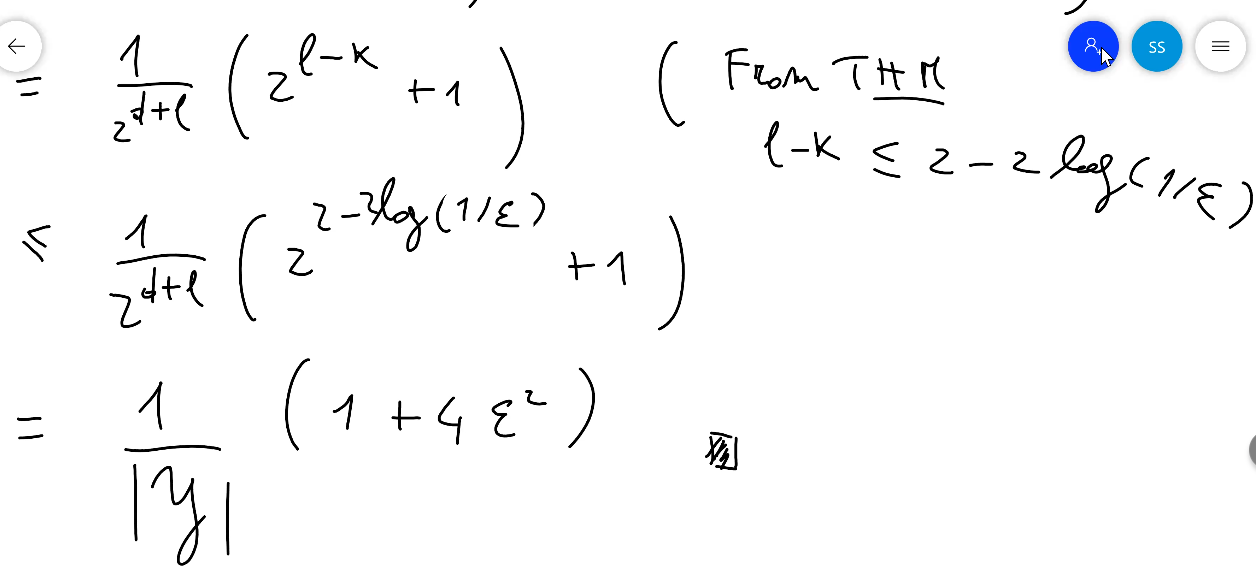 = 1/2^{d+l} ( 2^{l-k} + 1 ) ( From THM
l-k ≤ 2 - 2 log(1/ε)
≤ 1/2^{d+l} ( 2^{2-2log(1/ε)} + 1 )
= 1/|Y| ( 1 + 4 ε² )
SS